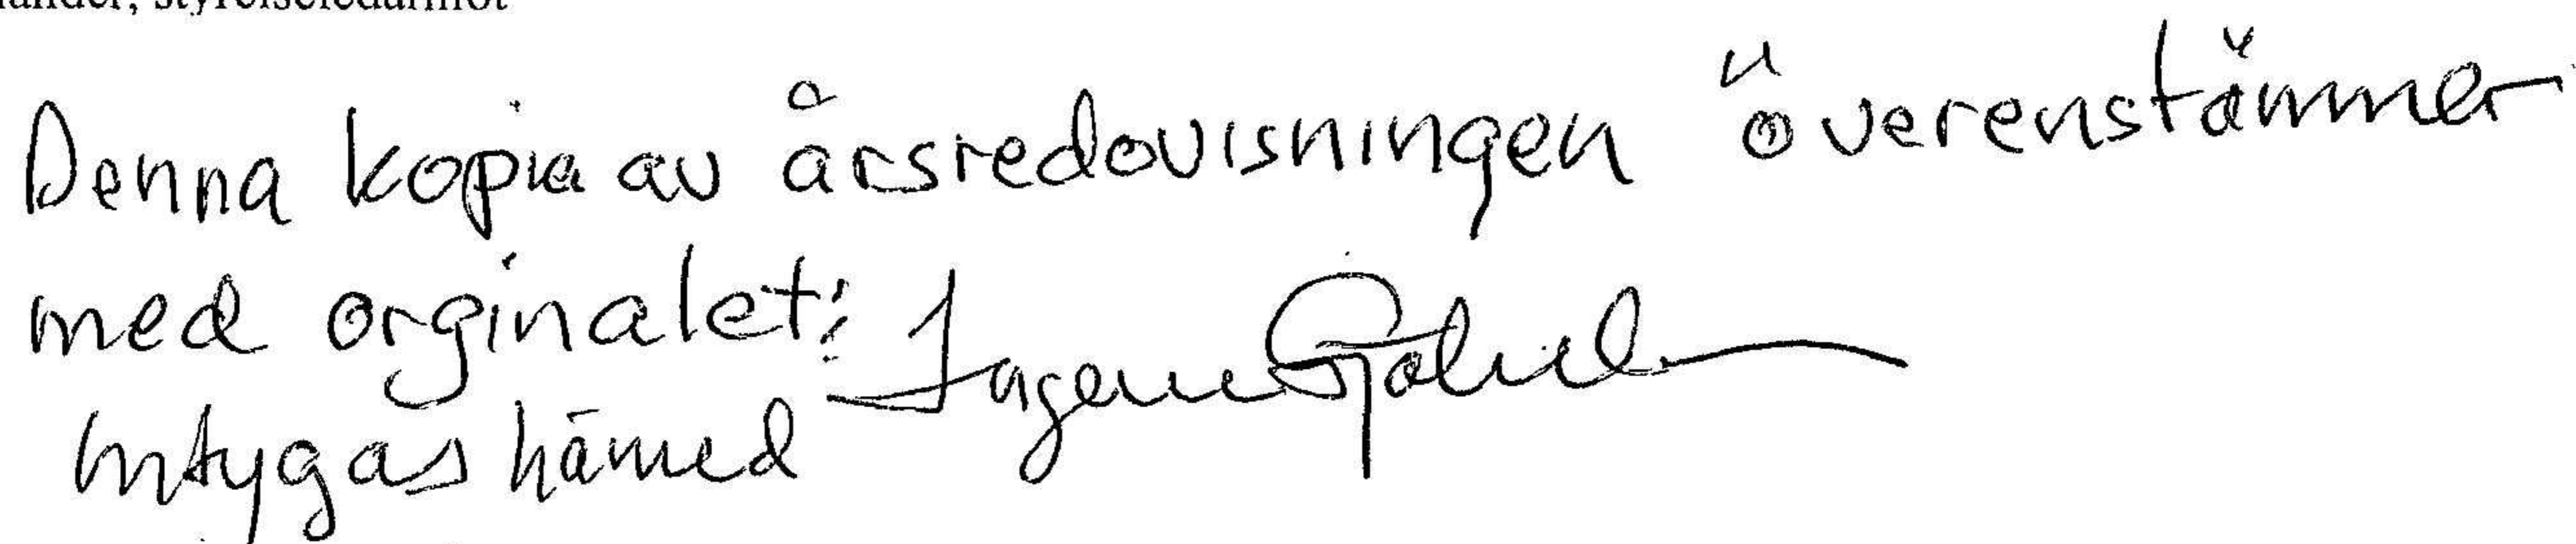 styrelseledamot
Denna kopia av årsredovisningen överenstämmer
med orginalet:
Intygas hämed